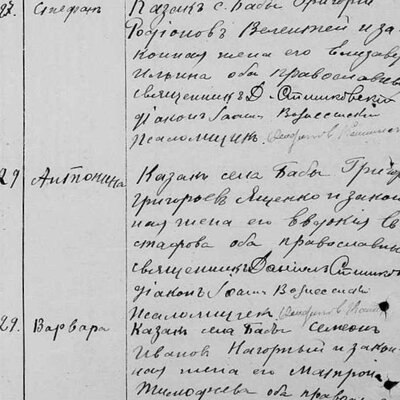 27. Стефан Казакъ с. Бабы Григорій
Родіоновъ Велентей и за-
конная жена его Елизавет
Ильина оба православн
священникъ Д. Стишковскій
діаконъ Іоаннъ Вознесенскій
Псаломщикъ
29 Антонина Казакъ села Бабы Григор
Григорьевъ Ященко и закон
ная жена его Евдокія Ев
стафова оба православн
священникъ Даніилъ Стишков
діаконъ Іоаннъ Вознесенскій
Псаломщикъ
29. Варвара Казакъ села Бабы Семенъ
Ивановъ Нагорный и закон
ная жена его Матрона
Тимофеева оба правосл